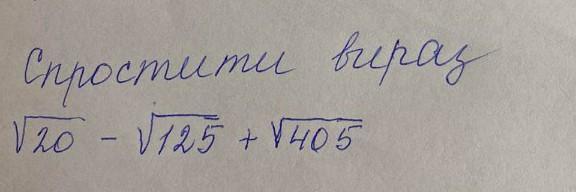 Спростити вираз
√20 - √125 + √405